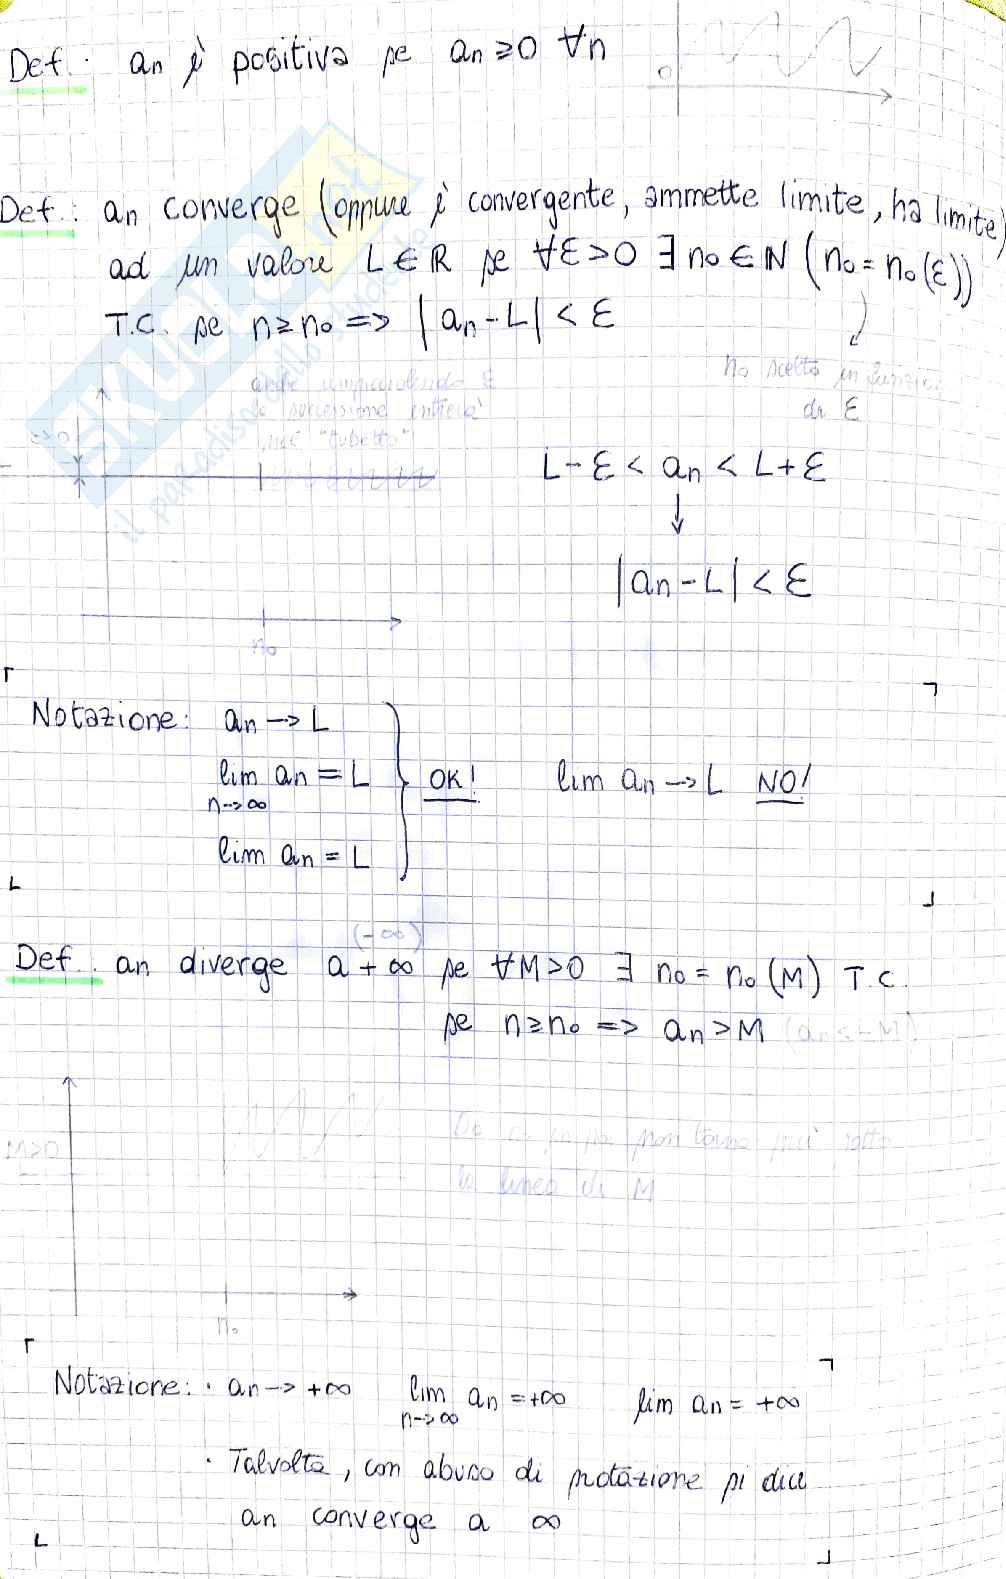 Def.: an è positiva se an ≥ 0 ∀n
0
Def.: an converge (oppure è convergente, ammette limite, ha limite)
ad un valore L ∈ ℝ se ∀ε>0 ∃ n₀ ∈ ℕ (n₀ = n₀(ε))
T.C. se n ≥ n₀ => |an - L| < ε
n₀ scelto in funzione
di ε
anche rimpicciolendo ε
la successione entrerà
nel "tubetto"
L-ε < an < L+ε
↓
|an - L| < ε
n₀
Notazione: an -> L
lim an = L
n->∞
lim an = L
OK!
lim an -> L NO!
(-∞)
Def.: an diverge a +∞ se ∀M>0 ∃ n₀ = n₀(M) T.C.
se n ≥ n₀ => an > M (an < -M)
M>0
Da in poi non torna più sotto
la linea di M
n₀
Notazione: · an -> +∞ lim an = +∞ lim an = +∞
n->∞
· Talvolta, con abuso di notazione si dice
an converge a ∞
SKUOLA.net
il paradiso dello studente